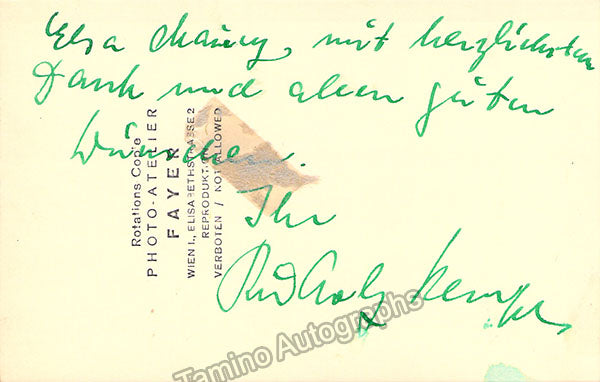 Elsa Mauney, mit herzlichsten
Dank und allen guten
Wünschen.
Ihr
Rudolf Kempe
Rotations Copie
PHOTO-ATELIER
FAYER
WIEN I., ELISABETHSTRASSE 2
REPRODUKTION
VERBOTEN / NOT ALLOWED
Tamino Autographs